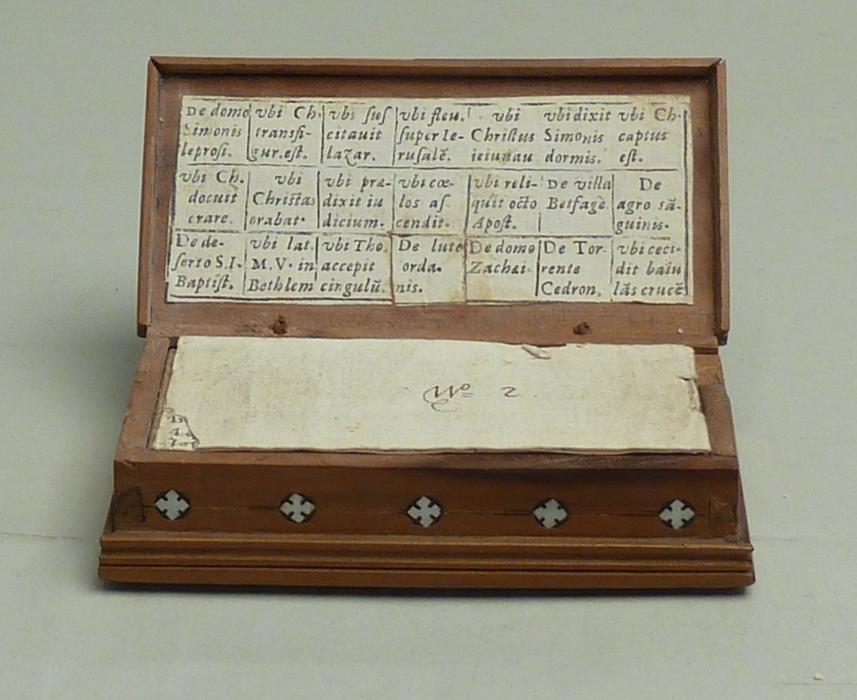 De domo Simonis leprosi.
vbi Ch. transfi-gur.est.
vbi sus citauit lazar.
vbi fleu. super Ie-rusalē.
vbi Christus ieiunau
vbi dixit Simonis dormis.
vbi Ch. captus est.
vbi Ch. docuit orare.
vbi Christus orabat.
vbi præ-dixit iu dicium.
vbi cœ-los as cendit.
vbi reli-quit octo Apost.
De villa Betfage
De agro sā-guinis.
De de-serto S.I. Baptist.
vbi lat. M.V. in Bethlem
vbi Tho. accepit cingulū.
De luto orda. nis.
De domo Zachæi.
De Tor-rente Cedron.
vbi ceci-dit baiu lās crucē
No 2